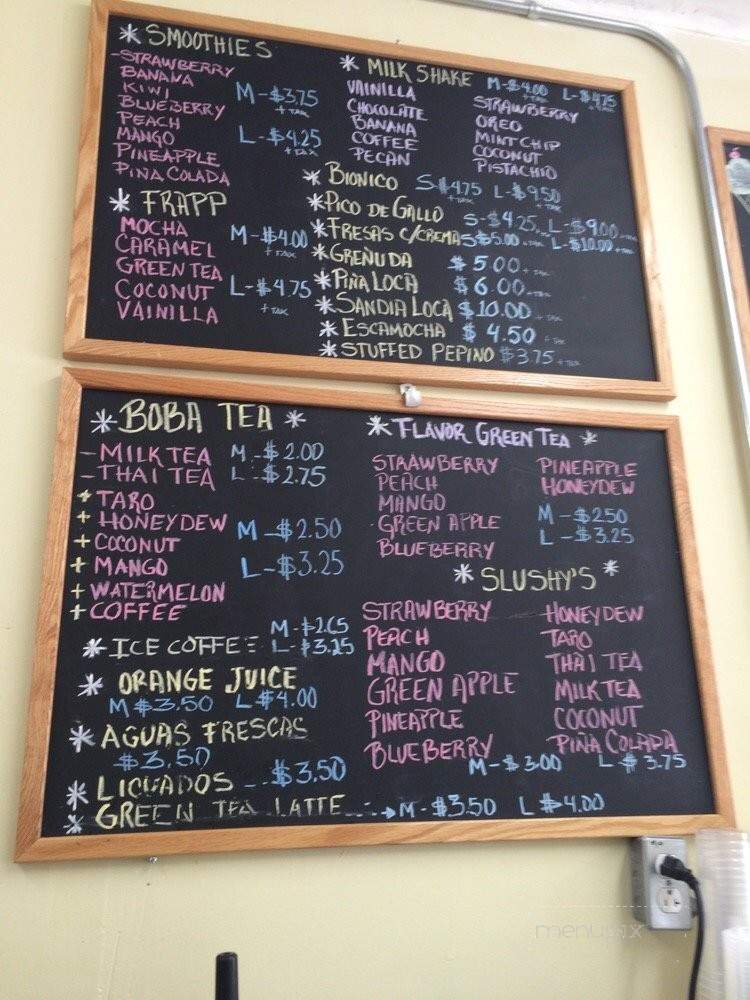 * SMOOTHIES
- STRAWBERRY
BANANA
KIWI
BLUEBERRY
PEACH
MANGO
PINEAPPLE
PINA COLADA
M - $3.75
+ TAX
L - $4.25
+ TAX
* FRAPP
MOCHA
CARAMEL
GREEN TEA
COCONUT
VAINILLA
M - $4.00
+ TAX
L - $4.75
+ TAX
* MILK SHAKE M - $4.00 L - $4.75
+ TAX
VAINILLA
CHOCOLATE
BANANA
COFFEE
PECAN
STRAWBERRY
OREO
MINT CHIP
COCONUT
PISTACHIO
* BIONICO S - $4.75 L - $9.50
+ TAX
* PICO DE GALLO S - $4.25 L - $9.00 + TAX
* FRESAS C/CREMA S $5.00 + TAX L - $10.00 + TAX
* GREÑUDA $5.00 + TAX
* PIÑA LOCA $6.00 + TAX
* SANDIA LOCA $10.00 + TAX
* ESCAMOCHA $4.50 + TAX
* STUFFED PEPINO $3.75 + TAX
* BOBA TEA *
- MILK TEA M - $2.00
- THAI TEA L - $2.75
+ TARO
+ HONEYDEW
+ COCONUT
+ MANGO
+ WATERMELON
+ COFFEE
M - $2.50
L - $3.25
* ICE COFFEE - M - $2.65
L - $3.25
* ORANGE JUICE
M $3.50 L $4.00
* AGUAS FRESCAS
$3.50
* LICUADOS - - $3.50
* GREEN TEA LATTE - - - → M - $3.50 L $4.00
* FLAVOR GREEN TEA *
STRAWBERRY
PEACH
MANGO
GREEN APPLE
BLUEBERRY
PINEAPPLE
HONEYDEW
M - $2.50
L - $3.25
* SLUSHY'S *
STRAWBERRY
PEACH
MANGO
GREEN APPLE
PINEAPPLE
BLUEBERRY
HONEYDEW
TARO
THAI TEA
MILK TEA
COCONUT
PIÑA COLADA
M - $3.00 L - $3.75
menupix